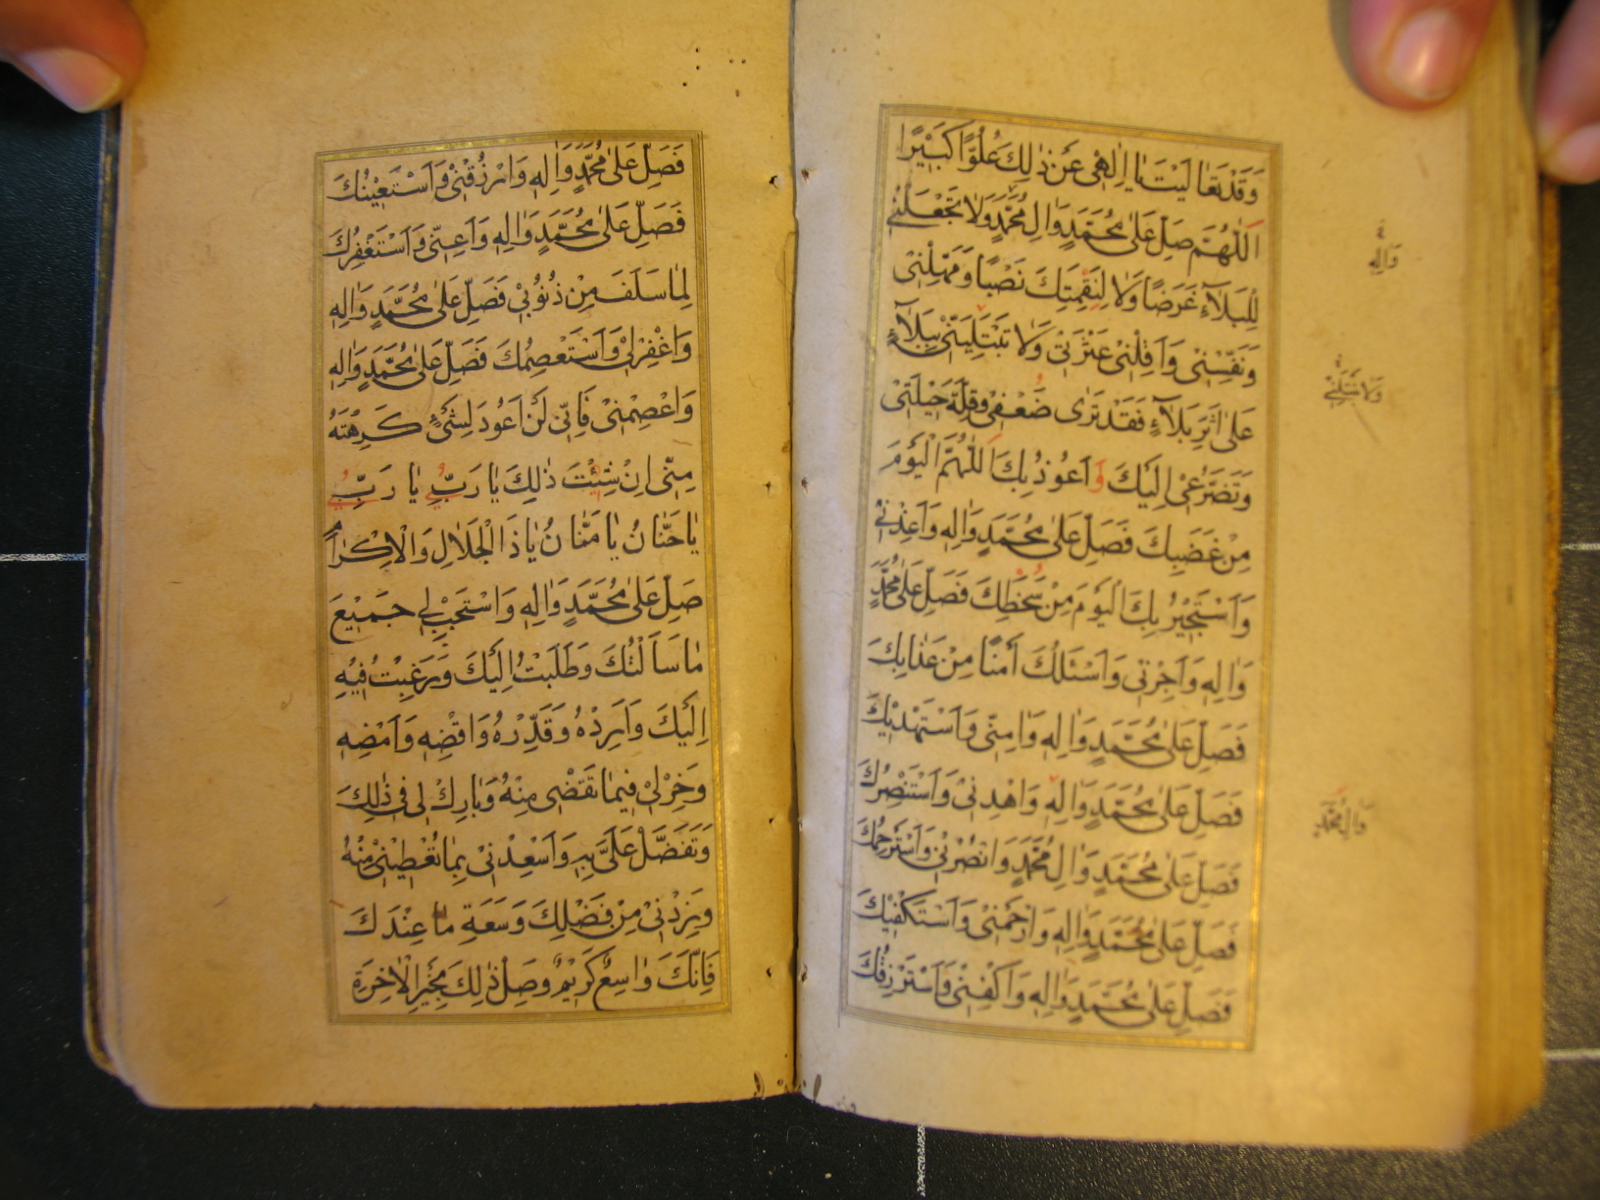 وَقَدْ تَعٰالَيْتَ يٰا اِلٰهٖى عَنْ ذٰلِكَ عُلُوًّا كَبٖيْرًا
اَللّٰهُمَّ صَلِّ عَلىٰ مُحَمَّدٍ وَاٰلِ مُحَمَّدٍ وَلاٰ تَجْعَلْنٖى
لِلْبَلآءِ غَرَضًا وَلاٰ لِنَقِمَتِكَ نَصْبًا وَمَهِّلْنٖى
وَنَفِّسْنٖى وَاَقِلْنٖى عَثْرَتٖى وَلاٰ تَبْتَلِيَنّٖى بِبَلآءٍ
عَلىٰ اَثَرِ بَلآءٍ فَقَدْ تَرٰى ضَعْفٖى وَقِلَّةَ حٖيْلَتٖى
وَتَضَرُّعٖى اِلَيْكَ وَ اَعُوذُ بِكَ اَللّٰهُمَّ الْيَوْمَ
مِنْ غَضَبِكَ فَصَلِّ عَلىٰ مُحَمَّدٍ وَاٰلِهٖ وَاَعِذْنٖى
وَاَسْتَجٖيْرُ بِكَ الْيَوْمَ مِنْ سَخَطِكَ فَصَلِّ عَلىٰ مُحَمَّدٍ
وَاٰلِهٖ وَاَجِرْنٖى وَاَسْئَلُكَ اَمْنًا مِنْ عَذٰابِكَ
فَصَلِّ عَلىٰ مُحَمَّدٍ وَاٰلِهٖ وَاٰمِنّٖى وَاَسْتَهْدٖيْكَ
فَصَلِّ عَلىٰ مُحَمَّدٍ وَاٰلِهٖ وَاهْدِنٖى وَاَسْتَنْصِرُكَ
فَصَلِّ عَلىٰ مُحَمَّدٍ وَاٰلِ مُحَمَّدٍ وَانْصُرْنٖى وَاَسْتَرْحِمُكَ
فَصَلِّ عَلىٰ مُحَمَّدٍ وَاٰلِهٖ وَارْحَمْنٖى وَاَسْتَكْفٖيْكَ
فَصَلِّ عَلىٰ مُحَمَّدٍ وَاٰلِهٖ وَاكْفِنٖى وَاَسْتَرْزِقُكَ
وَاٰلِهٖ
وَلاٰ تَبْتَلِنٖى
وَاٰلِ مُحَمَّدٍ
فَصَلِّ عَلىٰ مُحَمَّدٍ وَاٰلِهٖ وَارْزُقْنٖى وَاَسْتَعٖيْنُكَ
فَصَلِّ عَلىٰ مُحَمَّدٍ وَاٰلِهٖ وَاَعِنّٖى وَاَسْتَغْفِرُكَ
لِمٰا سَلَفَ مِنْ ذُنُوْبٖى فَصَلِّ عَلىٰ مُحَمَّدٍ وَاٰلِهٖ
وَاغْفِرْلٖى وَاَسْتَعْصِمُكَ فَصَلِّ عَلىٰ مُحَمَّدٍ وَاٰلِهٖ
وَاعْصِمْنٖى فَاِنّٖى لَنْ اَعُودَ لِشَىْءٍ كَرِهْتَهُ
مِنّٖى اِنْ شِئْتَ ذٰلِكَ يٰا رَبِّ يٰا رَبِّ
يٰا حَنّٰانُ يٰا مَنّٰانُ يٰا ذَا الْجَلاٰلِ وَالْاِكْرٰامِ
صَلِّ عَلىٰ مُحَمَّدٍ وَاٰلِهٖ وَاسْتَجِبْ لٖى جَمٖيْعَ
مٰا سَاَلْتُكَ وَطَلَبْتُ اِلَيْكَ وَرَغِبْتُ فٖيْهِ
اِلَيْكَ وَاَرِدْهُ وَقَدِّرْهُ وَاقْضِهٖ وَاَمْضِهٖ
وَخِرْلٖى فٖيمٰا تَقْضٖى مِنْهُ وَبٰارِكْ لٖى فٖى ذٰلِكَ
وَتَفَضَّلْ عَلَىَّ بِهٖ وَاَسْعِدْنٖى بِمٰا تُعْطٖيْنٖى مِنْهُ
وَزِدْنٖى مِنْ فَضْلِكَ وَسَعَةِ مٰا عِنْدَكَ
فَاِنَّكَ وٰاسِعٌ كَرٖيْمٌ وَصِلْ ذٰلِكَ بِخَيْرِ الْاٰخِرَةِ